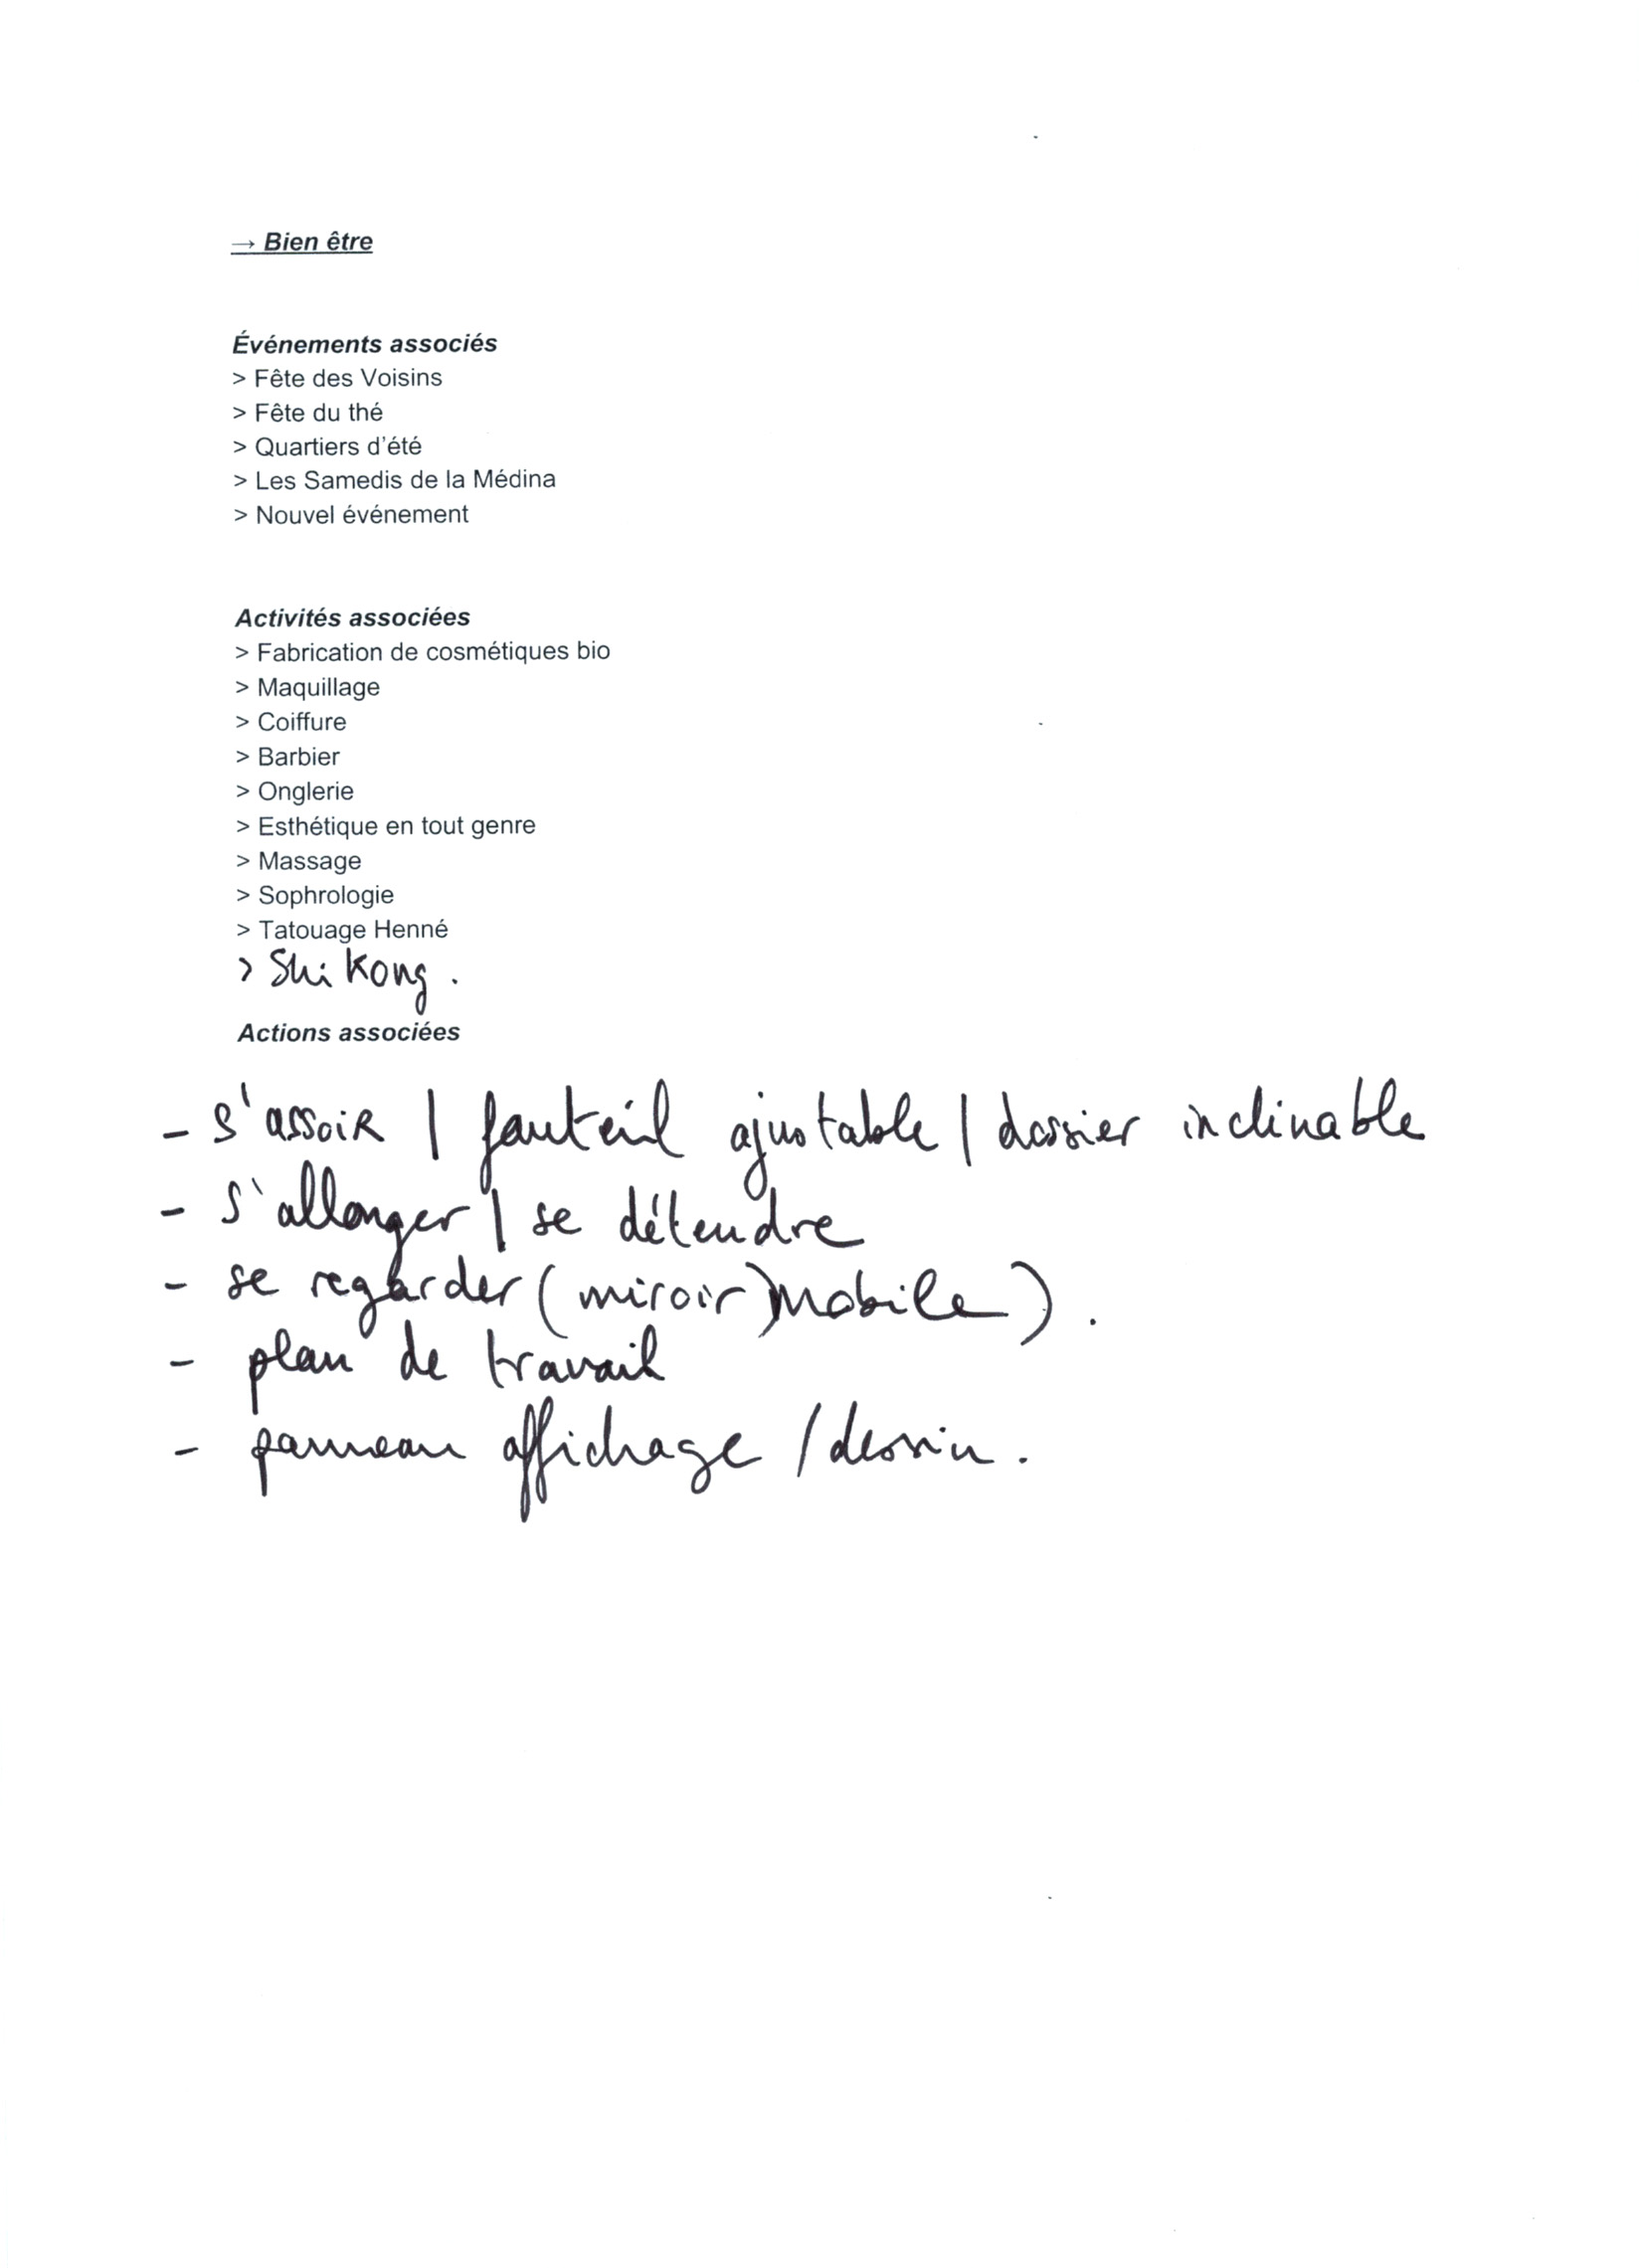 → Bien être
Événements associés
> Fête des Voisins
> Fête du thé
> Quartiers d'été
> Les Samedis de la Médina
> Nouvel événement
Activités associées
> Fabrication de cosmétiques bio
> Maquillage
> Coiffure
> Barbier
> Onglerie
> Esthétique en tout genre
> Massage
> Sophrologie
> Tatouage Henné
> Shi Kong.
Actions associées
- s'assoir | fauteil ajustable | dossier inclinable
- s'allonger | se détendre
- se regarder (miroir) mobile).
- plan de travail
- panneau affichage / dessin.